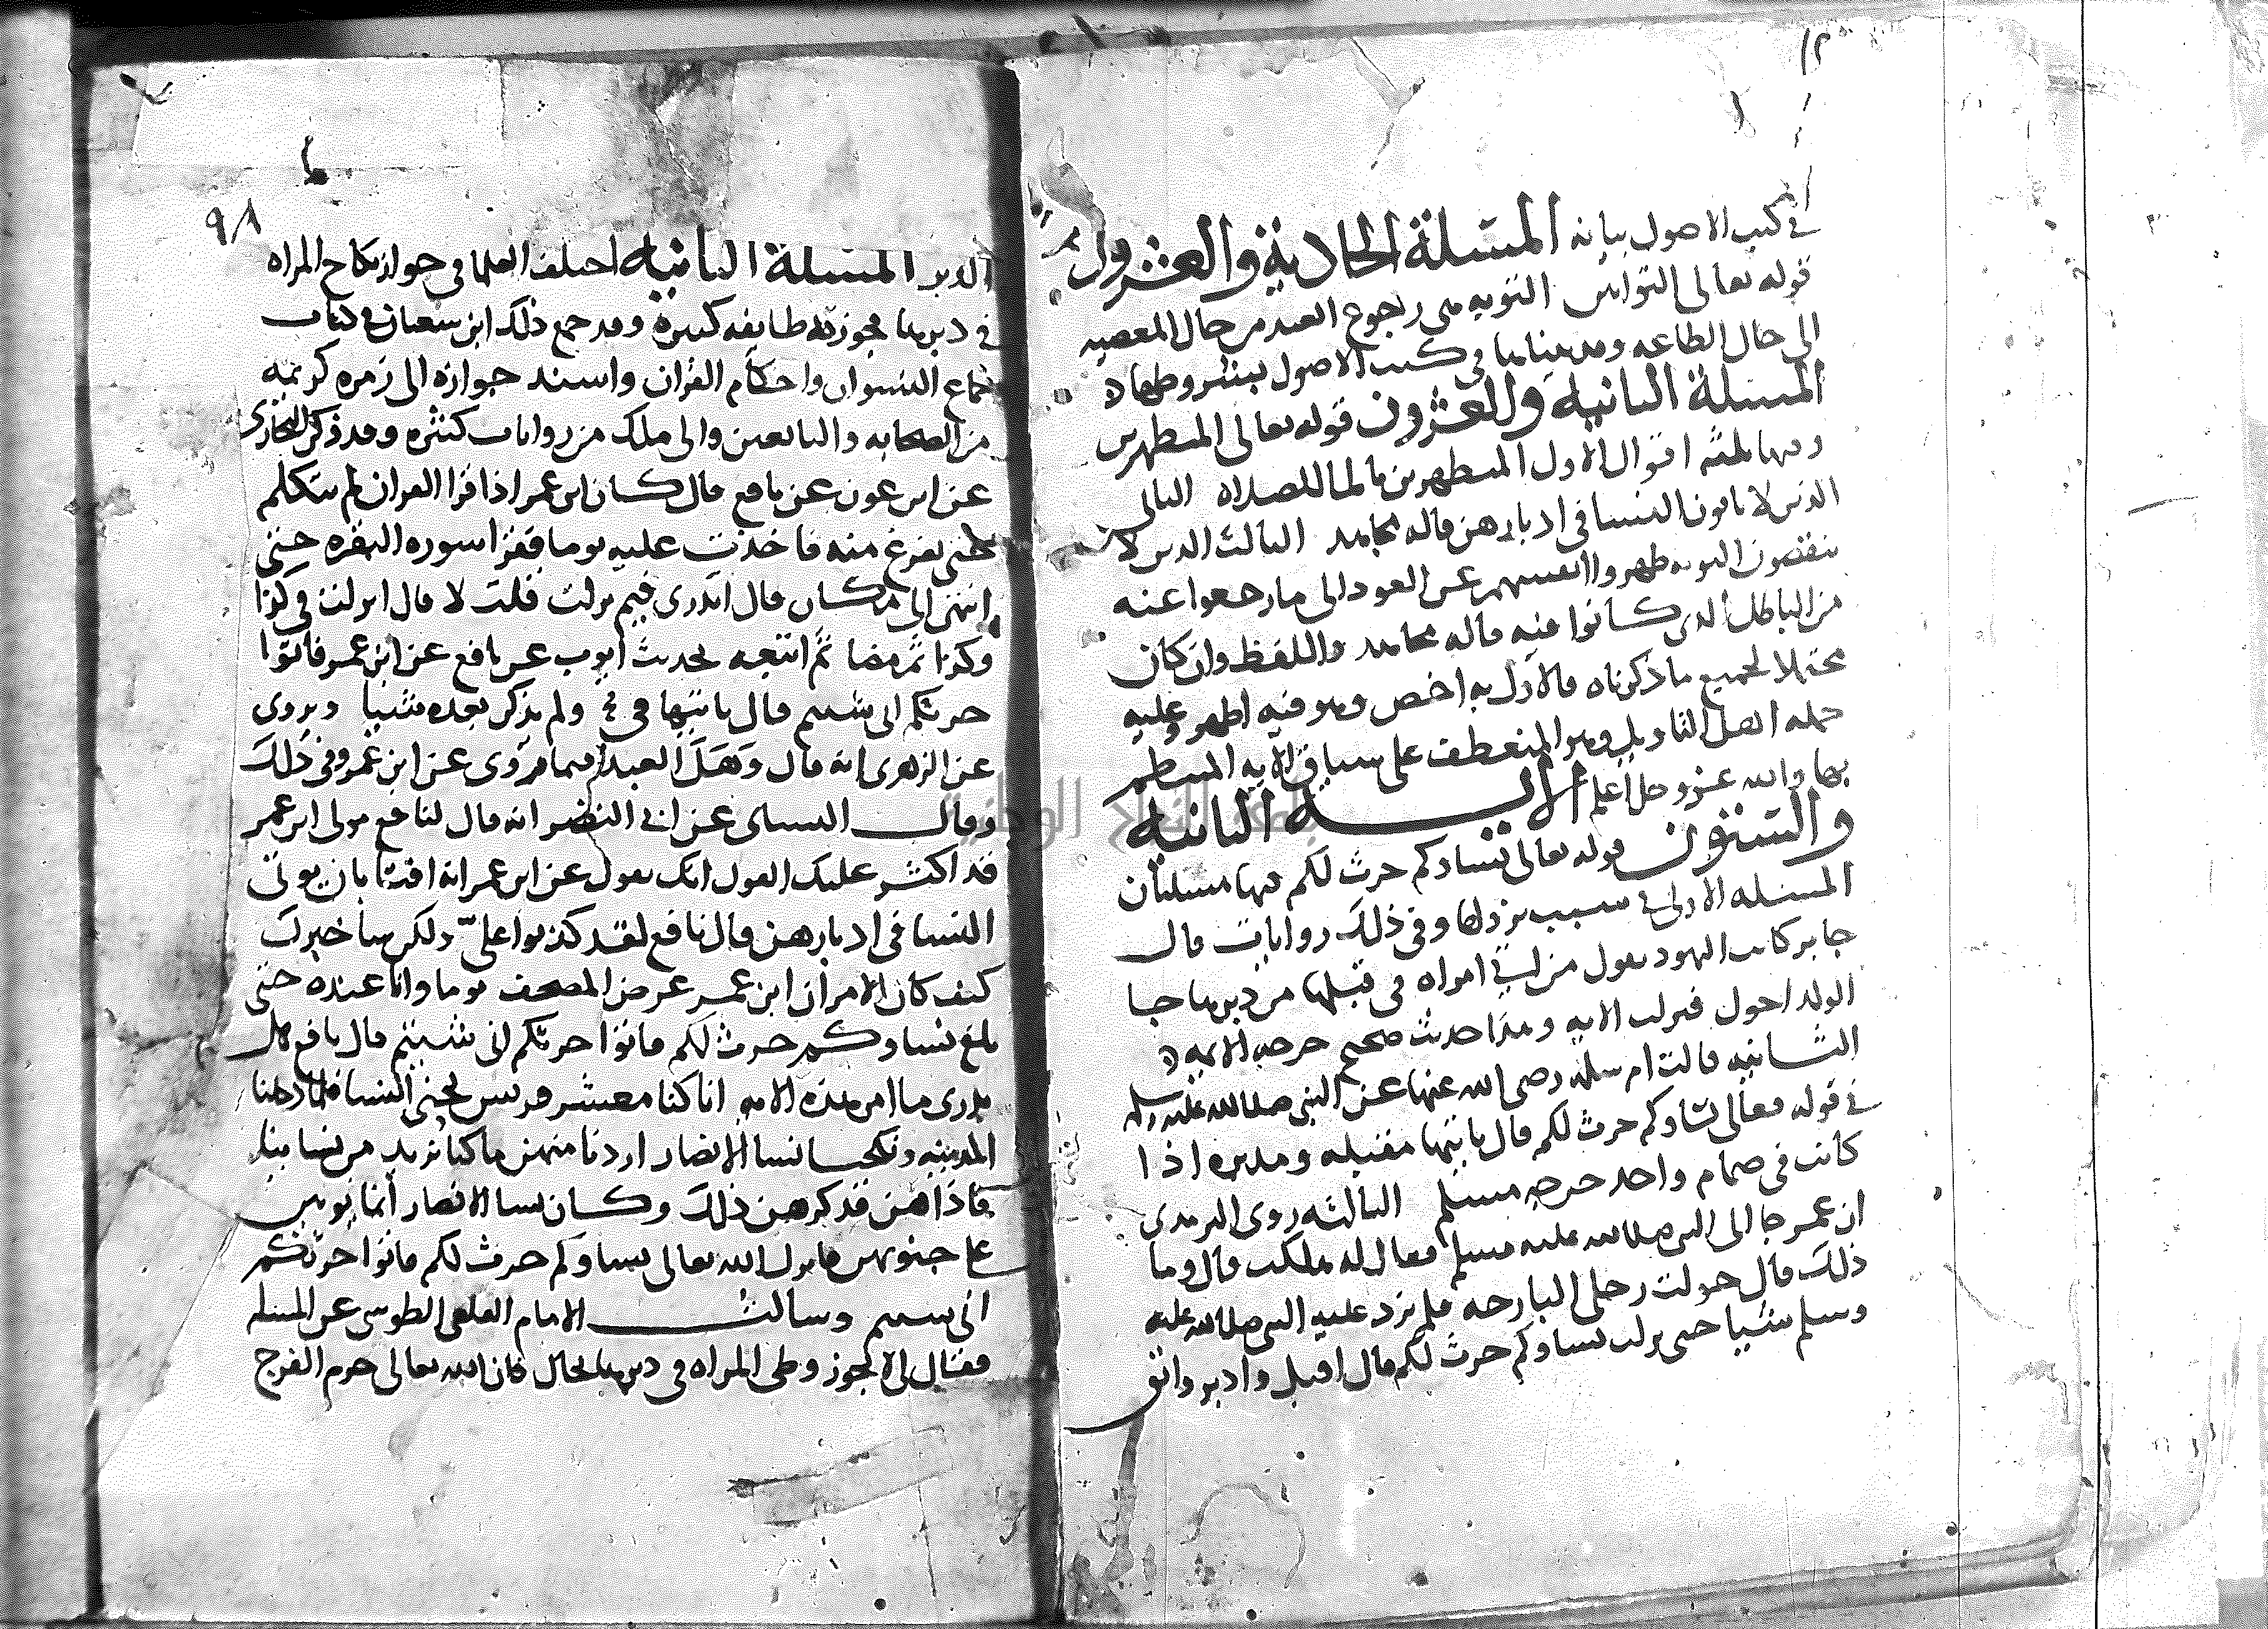 في كتب الاصول بيانه المسئلة الحادية والعشرون
قوله تعالى التوابين التوبه هي رجوع العبد من حال المعصيه
الى حال الطاعه وقد بيناها في كتب الاصول بشروطها
المسئلة الثانية والعشرون قوله تعالى المتطهرين
وفيها ثلثة اقوال الاول المتطهرين بالما للصلاة الثاني
الذين لا ياتون النسا في ادبارهن قاله مجاهد الثالث الذين لا
ينقضون التوبه طهروا انفسهم عن العود الى ما رجعوا عنه
من الباطل الذي كانوا فيه قاله مجاهد واللفظ وان كان
محتملا لجميع ما ذكرناه فالاول به اخص وهو فيه اظهر وعليه
حمله اهل التاويل وهو المنعطف على سياق الايه المنتظم
بها والله عز وجل اعلم الاية الثانية
والستون قوله تعالى نساوكم حرث لكم فيها مسلتان
المسئله الاولى في سبب نزولها وفي ذلك روايات قال
جابر كانت اليهود تقول من اتى امراة في قبلها من دبرها جا
الولد احول فنزلت الايه وهذا حديث صحيح خرجه الائمه
الثانيه قالت ام سلمه رضي الله عنها عن النبي صلى الله عليه وسلم
في قوله تعالى نساوكم حرث لكم قال ياتيها مقبله ومدبره اذا
كانت في صمام واحد خرجه مسلم الثالثه روى الترمذي
ان عمر جا الى النبي صلى الله عليه وسلم فقال له هلكت قال وما
ذلك قال حولت رحلي البارحه فلم يزد عليه النبي صلى الله عليه
وسلم شيا حتى نزلت نساوكم حرث لكم قال اقبل وادبر واتق
٩٨
الدبر المسئلة الثانية اختلف العلما في جواز نكاح المراه
في دبرها فجوزته طايفه كبيره وقد جمع ذلك ابن شعبان في كتاب
جماع النسوان واحكام القران واسند جوازه الى زمره كريمه
من الصحابه والتابعين والى ملك من روايات كثيره وقد ذكر البخاري
عن ابن عون عن نافع قال كان ابن عمر اذا قرا القران لم يتكلم
حتى يفرغ منه فاخذت عليه يوما فقرا سوره البقره حتى
انتهى الى مكان قال اتدري فيم نزلت قلت لا قال انزلت في كذا
وكذا ثم مضا ثم اتبعه بحديث ايوب عن نافع عن ابن عمر فاتوا
حرثكم انى شيتم قال ياتيها في ولم يذكر بعده شيا ويروى
عن الزهري انه قال وهل العبد فيما روى عن ابن عمر وفي ذلك
وقال النساي عن ابي النضر انه قال لنافع مولى ابن عمر
قد اكثر عليك القول انك تقول عن ابن عمر انه افتا بان يوتى
النسا في ادبارهن قال نافع لقد كذبوا علي ولكن ساخبرك
كيف كان الامر ان ابن عمر عرض المصحف يوما وانا عنده حتى
بلغ نساوكم حرث لكم فاتوا حرثكم انى شيتم قال يا نافع هل
تدري ما امر هذه الايه انا كنا معشر قريش نجبي النسا فلما دخلنا
المدينه ونكحنا نسا الانصار اردنا منهن ما كنا نريد من نسائنا
فاذا هن قد كرهن ذلك وكان نسا الانصار انما يوتين
على جنوبهن فانزل الله تعالى نساوكم حرث لكم فاتوا حرثكم
انى شيتم وسالت الامام القاضي الطوسي عن المسئله
فقال لي لا يجوز وطى المراه في دبرها بحال فان الله تعالى حرم الفرج